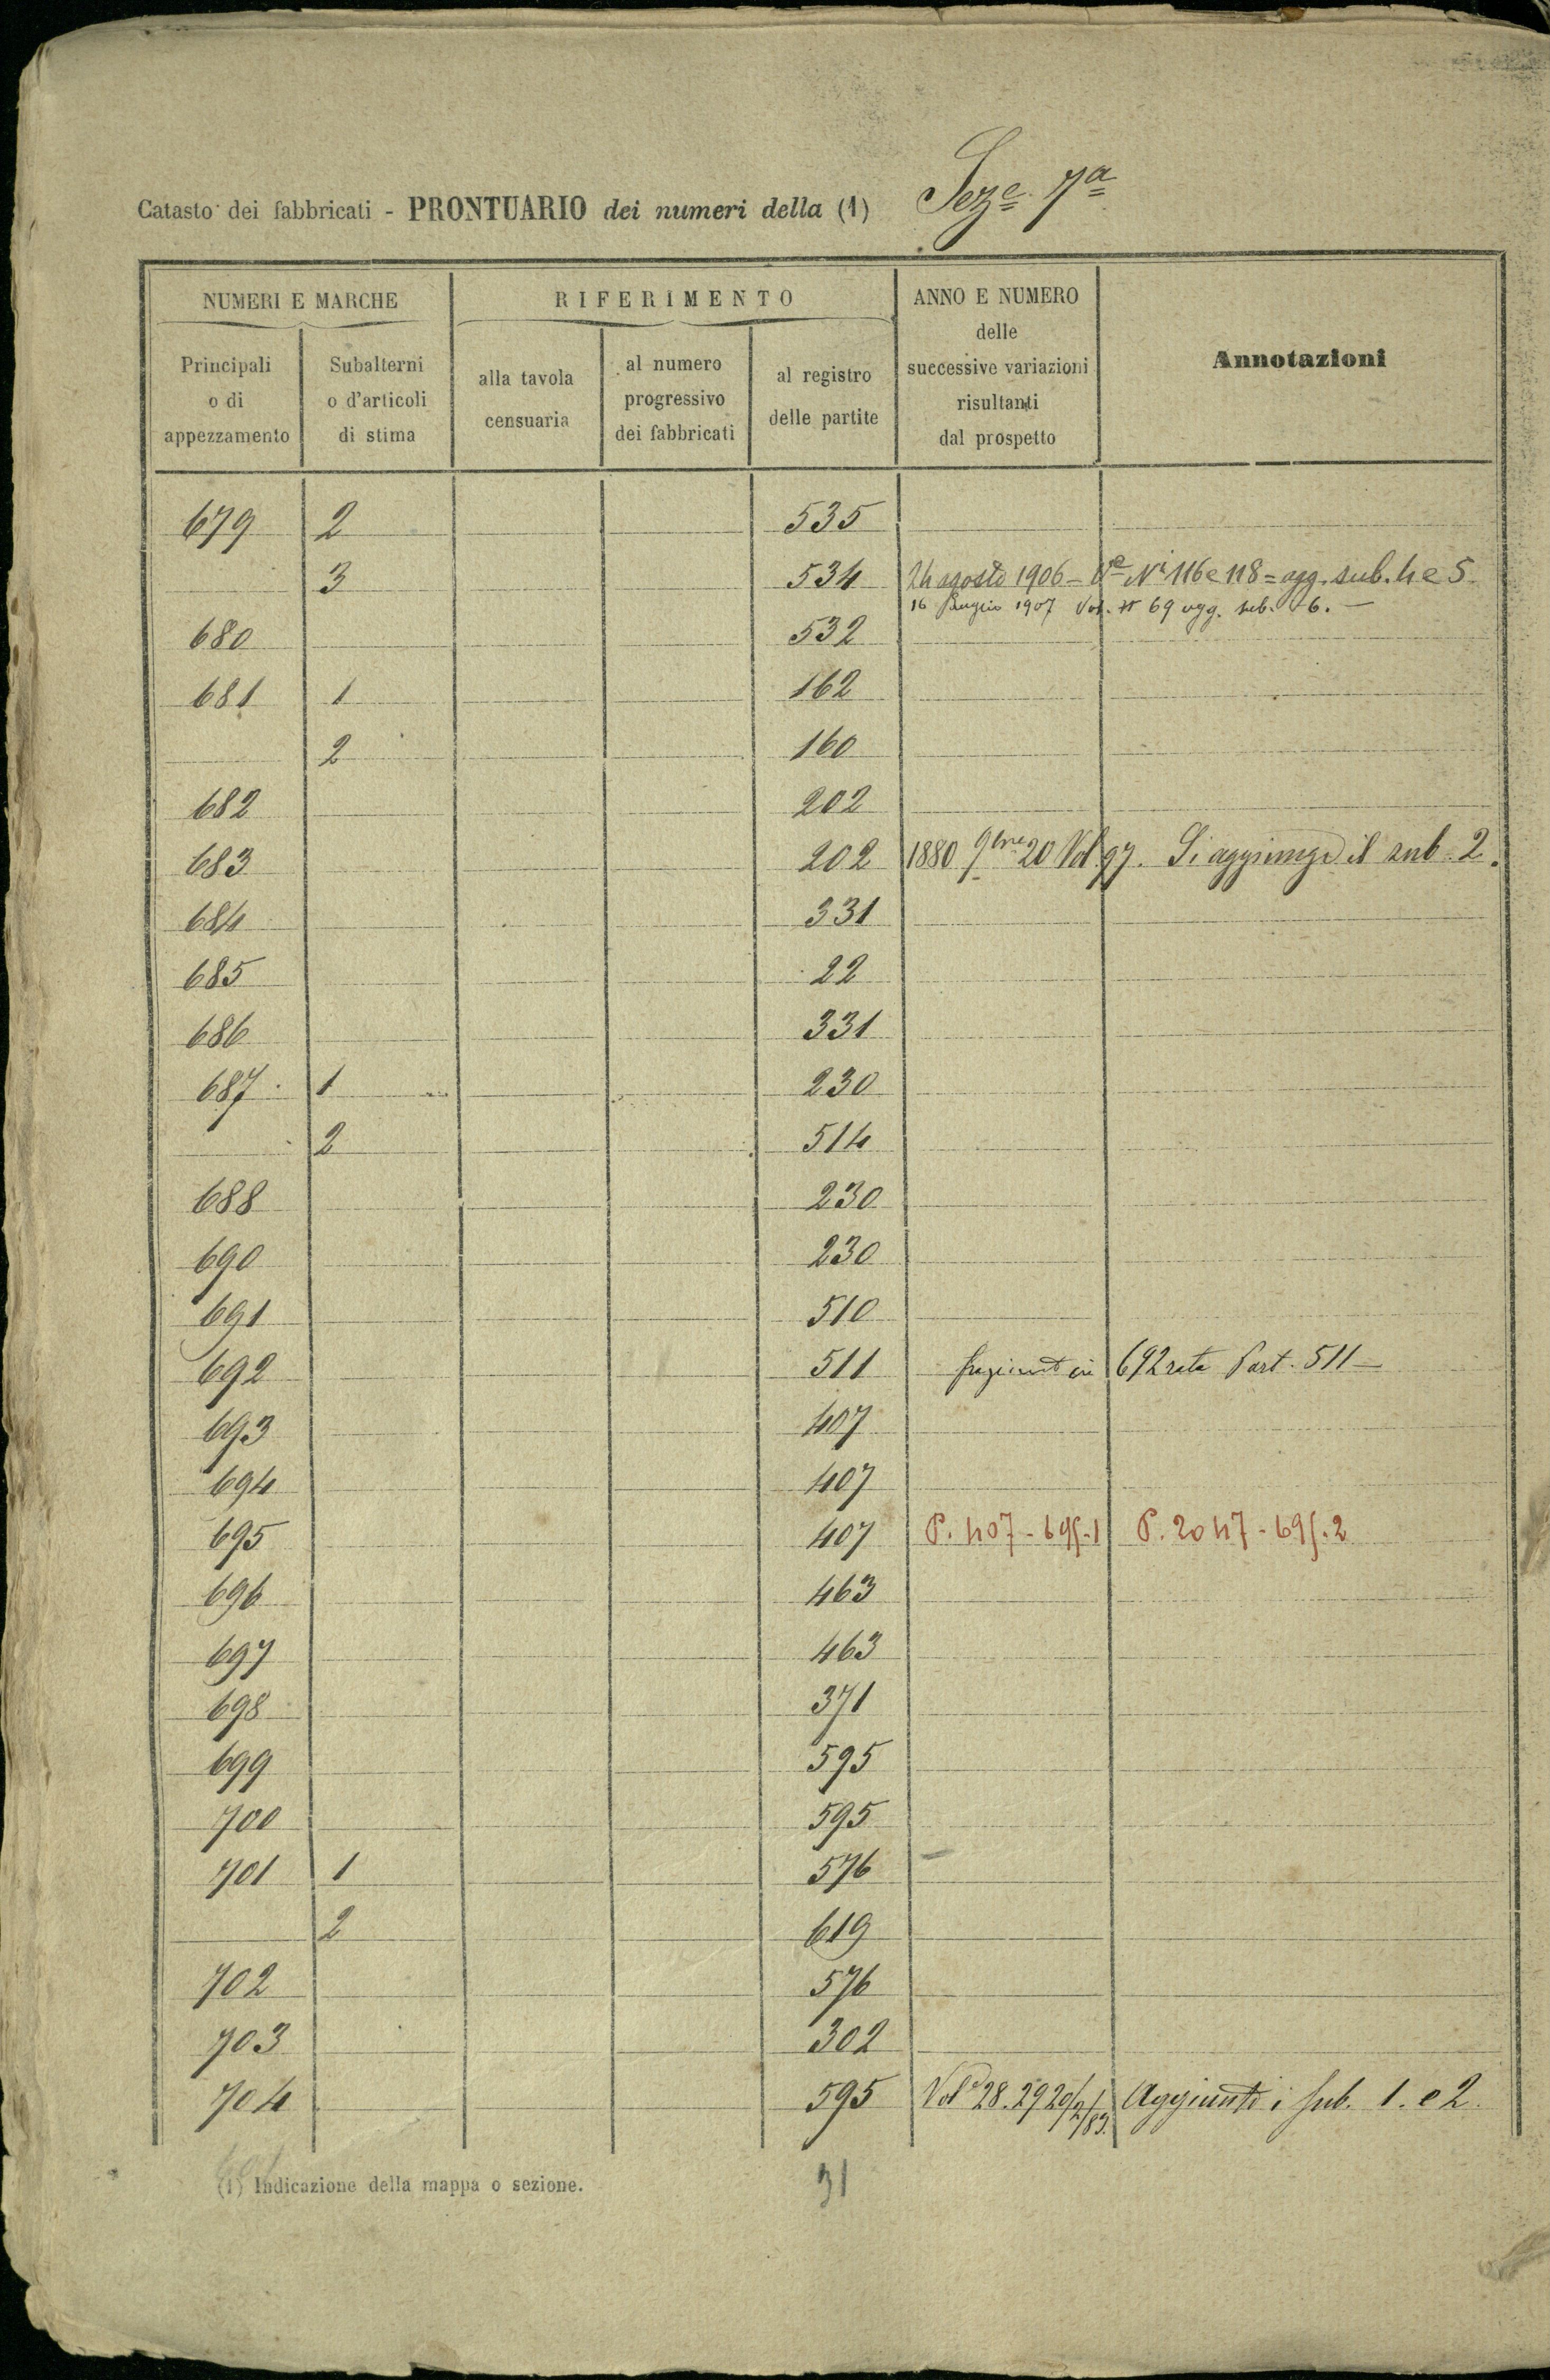 Catasto dei fabbricati - PRONTUARIO dei numeri della (1) Seze. 7a
NUMERI E MARCHE
RIFERIMENTO
ANNO E NUMERO
delle
successive variazioni
risultanti
dal prospetto
Annotazioni
Principali
o di
appezzamento
Subalterni
o d'articoli
di stima
alla tavola
censuaria
al numero
progressivo
dei fabbricati
al registro
delle partite
679 2 535
3 534 24 agosto 1906 - Ve Ni 116 e 118 = agg. sub. 4 e 5.
16 1907 Vol. N 69 agg. sub. 6. -
680 532
681 1 162
2 160
682 202
683 202 1880 9bre 20 Vol. 97. Si aggiunge il sub. 2.
684 331
685 22
686 331
687 1 230
2 514
688 230
690 230
691 510
692 511 692 rata Part. 511 -
693 407
694 407
695 407 P. 407 - 695.1 P. 2047 - 695.2
696 463
697 463
698 371
699 595
700 595
701 1 576
2 619
702 576
703 302
704 595 Vol. 28. 29 20/2/83. Aggiunti i sub. 1. e 2.
(1) Indicazione della mappa o sezione.
31